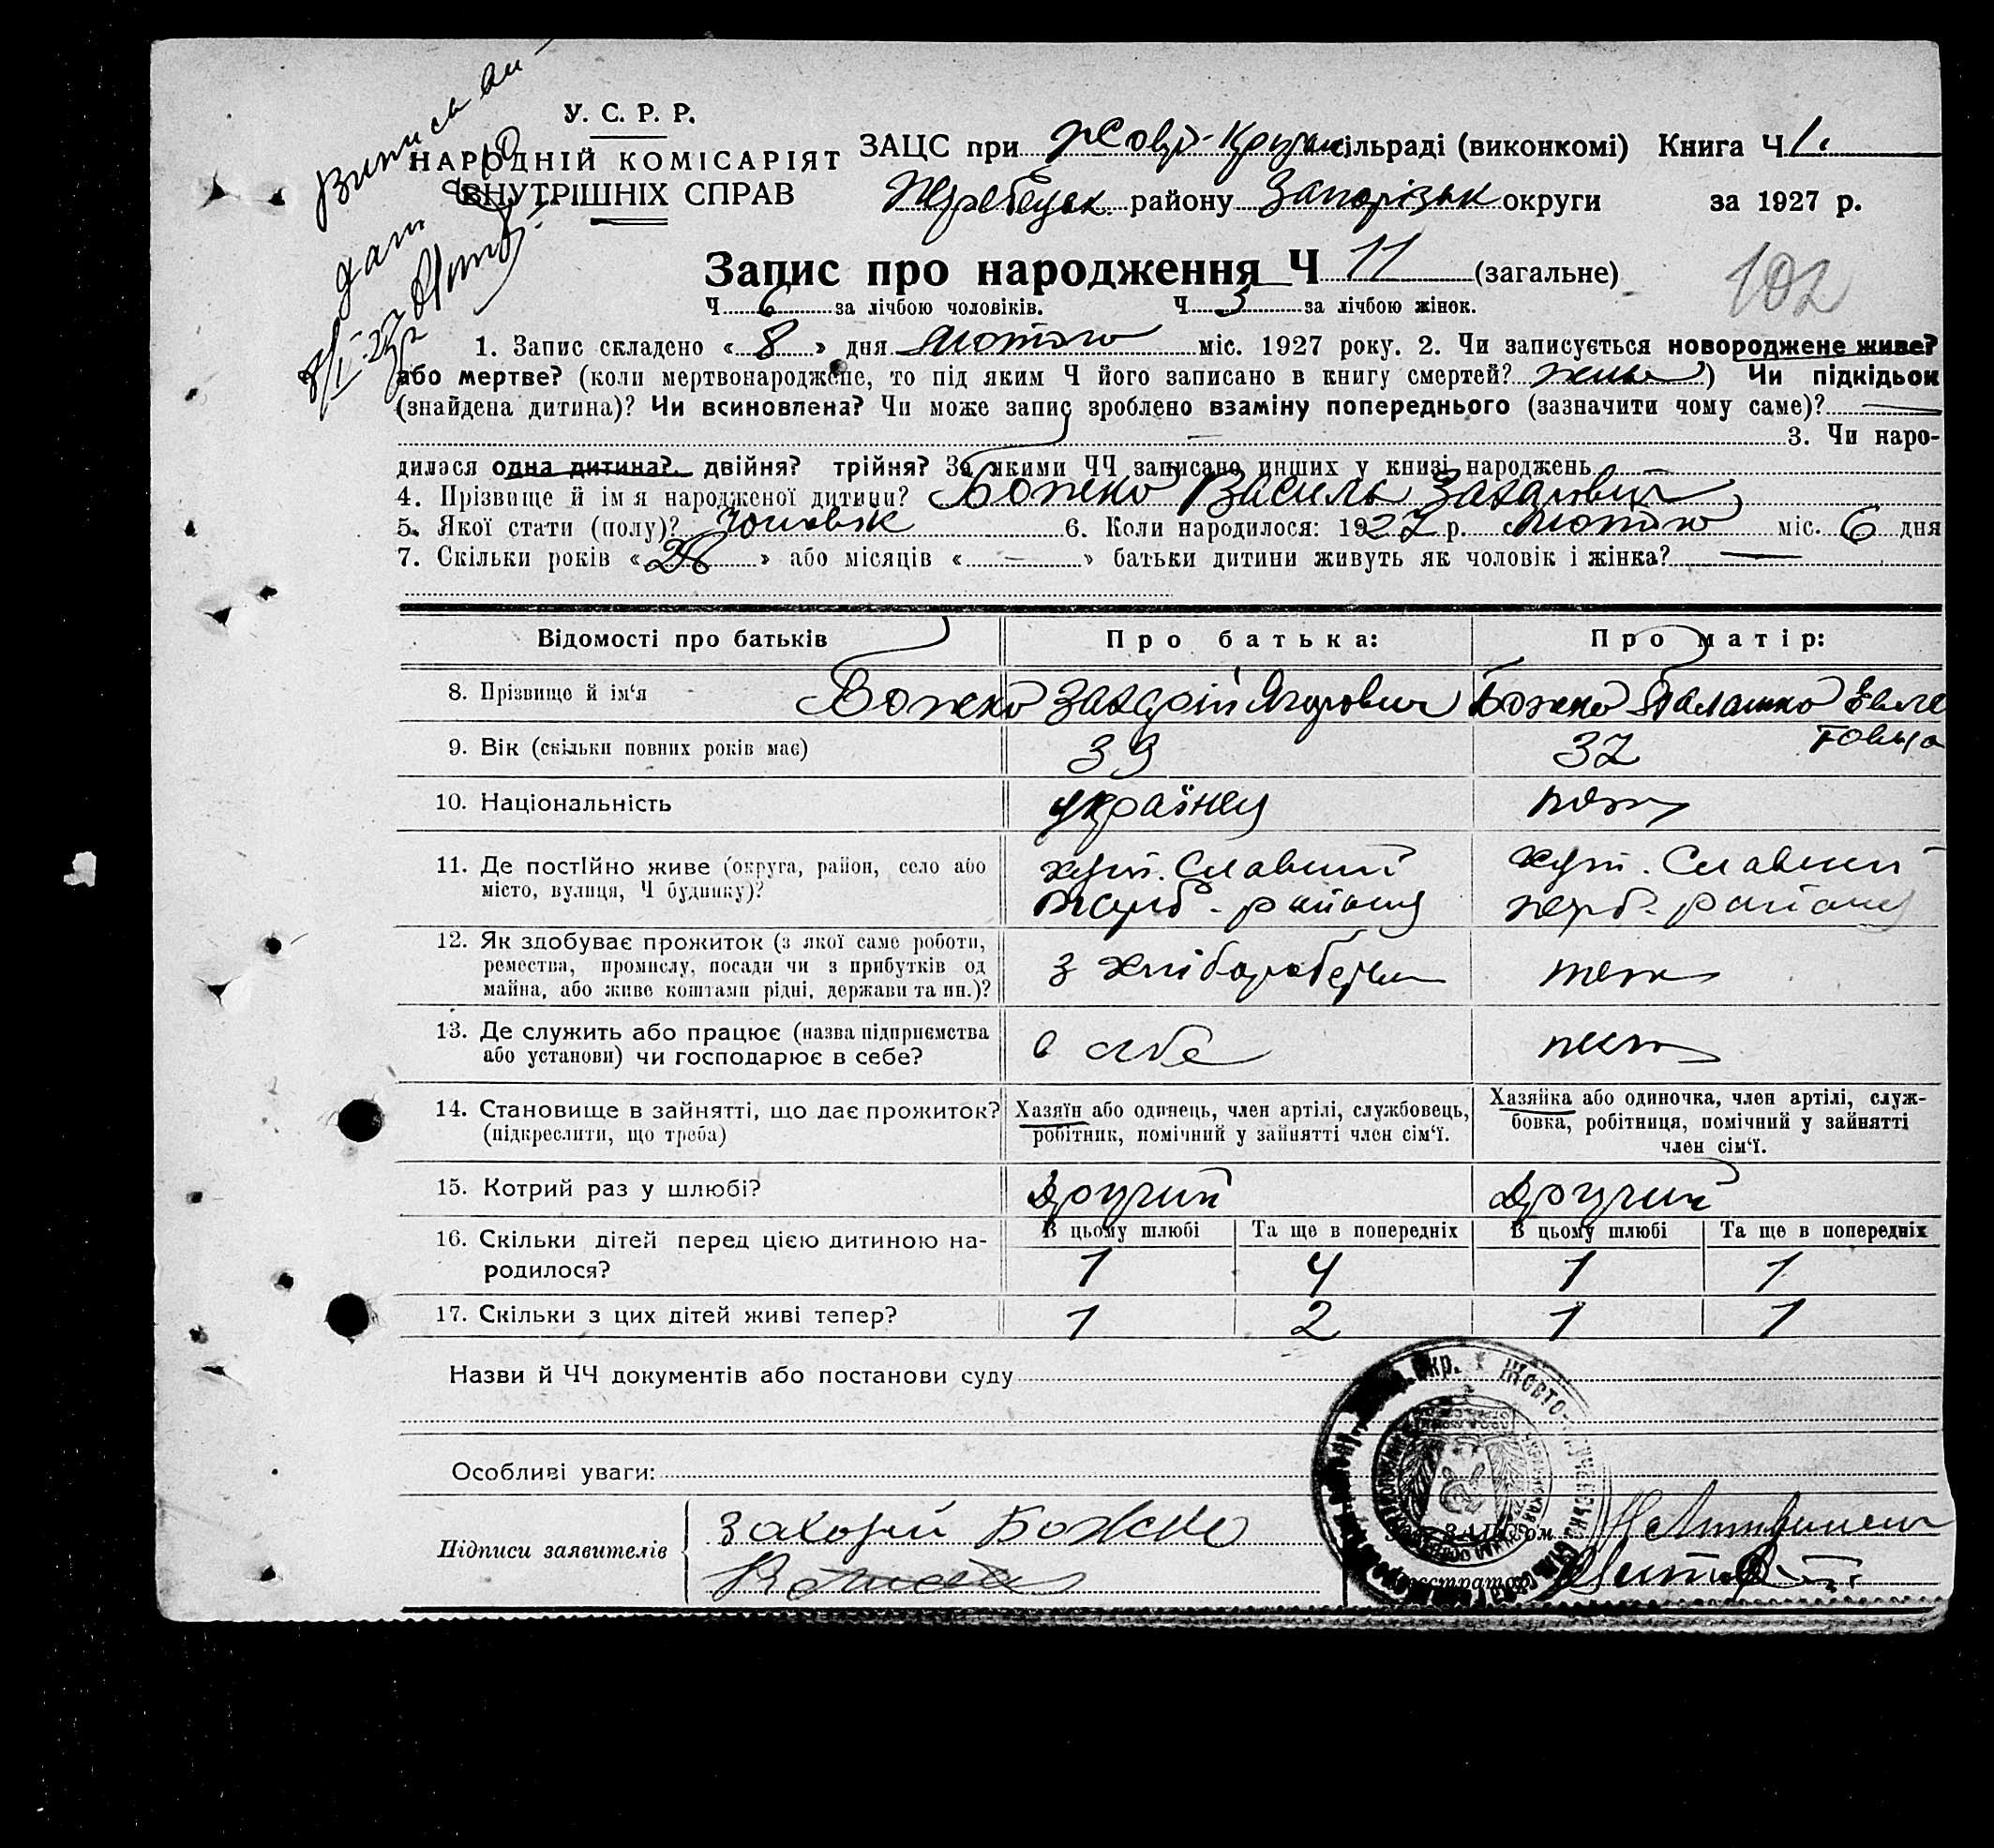 Випись
У. С. Р. Р.
НАРОДНІЙ КОМІСАРІЯТ
ВНУТРІШНІХ СПРАВ
ЗАЦС при Жовт-Круч сільраді (виконкомі) Книга Ч 1.
Жеребецьк. району Запорізьк округи за 1927 р.
Запис про народження Ч 11 (загальне)
102
Ч 6 за лічбою чоловіків. Ч 5 за лічбою жінок.
1. Запис складено « 8 » дня Лютого міс. 1927 року. 2. Чи записується новороджене живе?
або мертве? (коли мертвонароджене, то під яким Ч його записано в книгу смертей? ) Чи підкідьок
(знайдена дитина)? Чи всиновлена? Чи може запис зроблено взаміну попереднього (зазначити чому саме)? —
3. Чи наро-
дилася одна дитина? двійня? трійня? За якими ЧЧ записано инших у книзі народжень
4. Прізвище й ім я народженої дитини? Божко Василь Захарович
5. Якої стати (полу)? Чоловік 6. Коли народилося: 1927 р. Лютого міс. 6 дня
7. Скільки років « » або місяців « — » батьки дитини живуть як чоловік і жінка? —
Відомості про батьків Про батька: Про матір:
8. Прізвище й ім‘я Божко Захарій Ягорович Божко Палашка Євле
9. Вік (скільки повних років має) 39 37
10. Національність українец тож
11. Де постійно живе (округа, район, село або хут. Славний хут. Славний
місто, вулиця, Ч будинку)? Жереб. району жереб. району
12. Як здобуває прожиток (з якої саме роботи,
ремества, промислу, посади чи з прибутків од з хліборобства теж
майна, або живе коштами рідні, держави та ин.)?
13. Де служить або працює (назва підприємства в себе теж
або установи) чи господарює в себе?
14. Становище в зайнятті, що дає прожиток? Хазяїн або одинець, член артілі, службовець, Хазяйка або одиночка, член артілі, служ-
(підкреслити, що треба) робітник, помічний у зайнятті член сім‘ї. бовка, робітниця, помічний у зайнятті
член сім‘ї.
15. Котрий раз у шлюбі? Другий Другий
В цьому шлюбі Та ще в попередніх В цьому шлюбі Та ще в попередніх
16. Скільки дітей перед цією дитиною на- 1 4 1 1
родилося?
17. Скільки з цих дітей живі тепер? 1 2 1 1
Назви й ЧЧ документів або постанови суду
Особливі уваги:
Підписи заявителів Захорій Божко